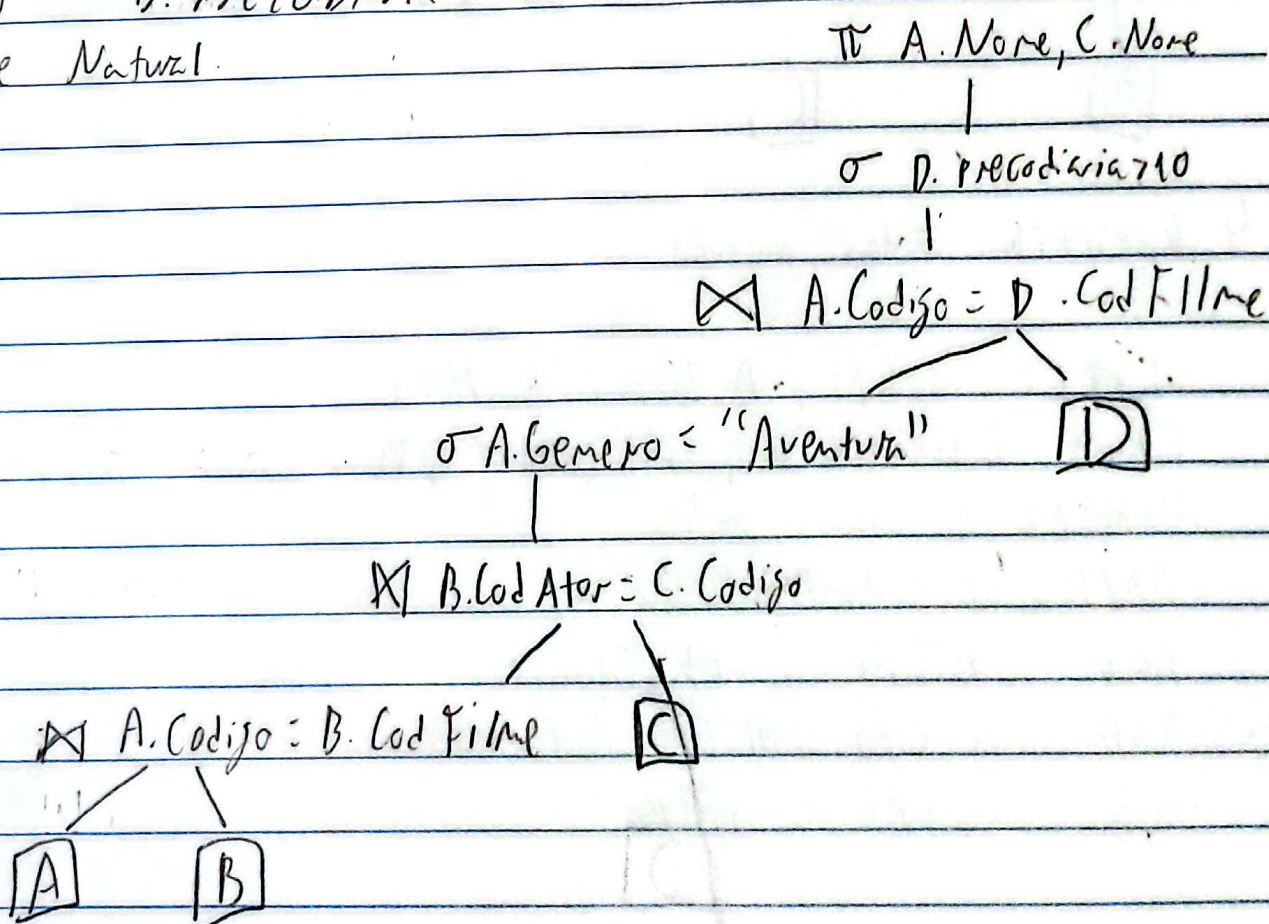 e Natural.
π A.Nome, C.Nome
σ D.precodiaria>10
⋈ A.Codigo = D.CodFIlme
σ A.Genero = "Aventura"
D
⋈ B.CodAtor = C.Codigo
⋈ A.Codigo = B.CodFilme
C
A
B